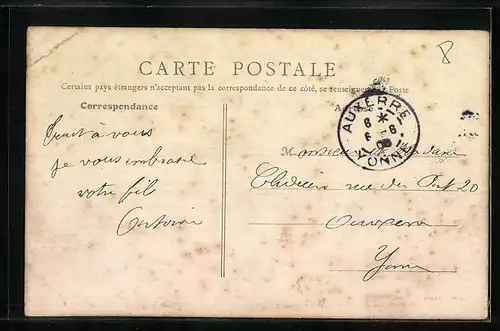 8
CARTE POSTALE
Certains pays étrangers n'acceptant pas la correspondance de ce côté, se renseigner à la Poste
Correspondance
AUXERRE
YONNE
Tout à vous
je vous embrasse
votre fils
Antoine
Monsieur
rue du Pont 20
Auxerre
Yonne